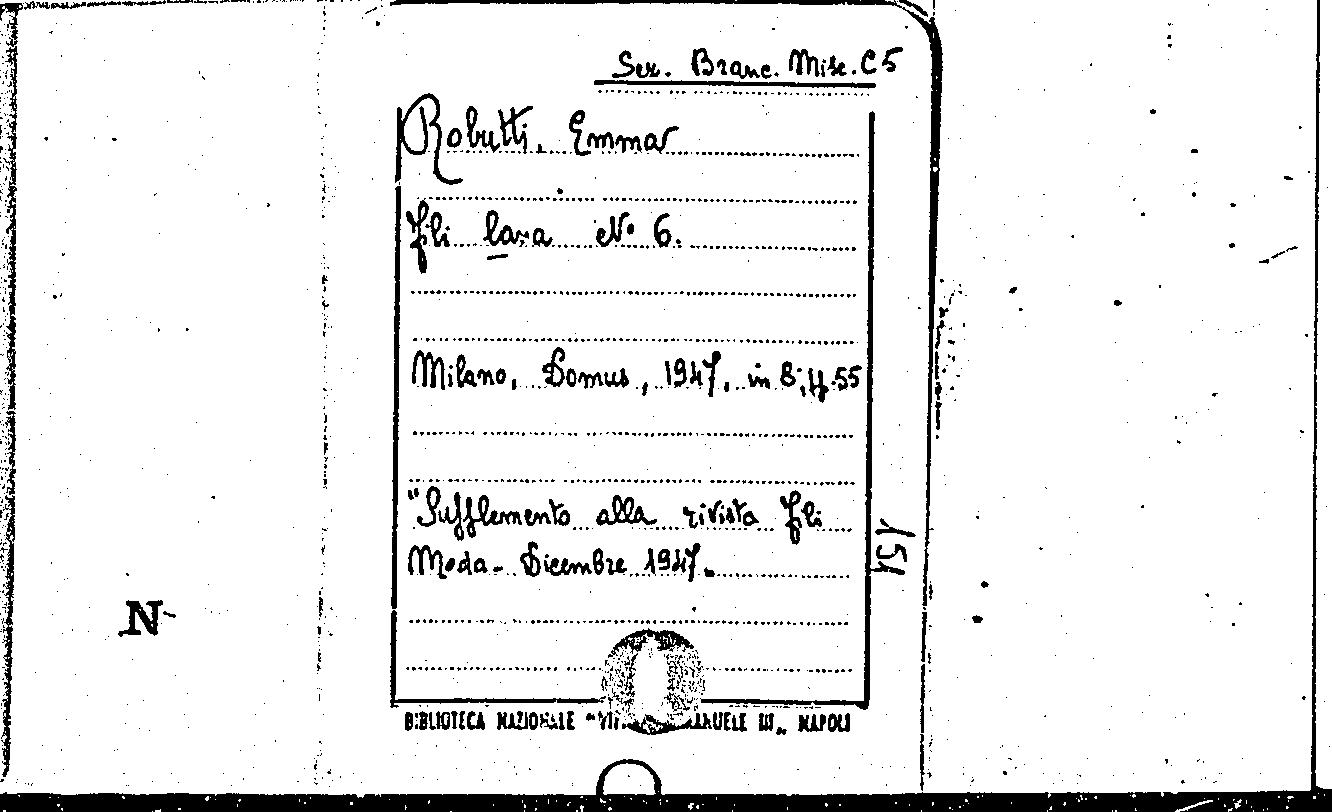 Sez. Branc. Misc. C 5
Robutti, Emma
Fili lana N° 6.
Milano, Domus, 1947, in 8°, pp. 55
"Supplemento alla rivista Fili
Moda - Dicembre 1947.
151
N
BIBLIOTECA NAZIONALE "VITTORIO EMANUELE III" NAPOLI